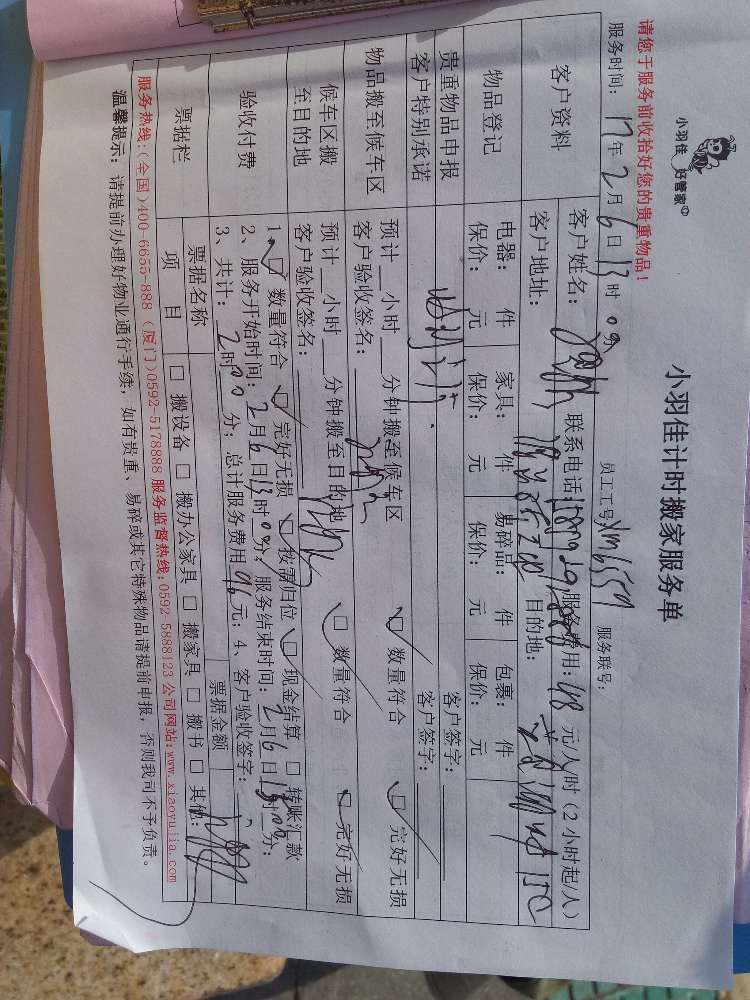 小羽佳 好管家
小羽佳计时搬家服务单
请您于服务前收拾好您的贵重物品!
员工工号: 服务联号:
服务时间: 17年 2月 6日 13时 0分
客户资料
客户姓名: 联系电话: 服务费用: 48 元/人/时 (2小时起/人)
客户地址: 目的地:
物品登记
电器: 件 家具: 件 易碎品: 件 包裹: 件
保价: 元 保价: 元 保价: 元 保价: 元
贵重物品申报 客户签字:
客户特别承诺 客户签字:
物品搬至候车区
预计__小时__分钟搬至候车区 □ 数量符合 □ 完好无损
客户验收签名:
候车区搬至目的地
预计__小时__分钟搬至目的地 □ 数量符合 □ 完好无损
客户验收签名:
验收付费
1、□ 数量符合 □ 完好无损 □ 按需归位 □ 现金结算 □ 转账汇款
2、服务开始时间: 2月6日13时0分; 服务结束时间: 2月6日15时00分;
3、共计: 2时00分; 总计服务费用 96 元; 4、客户验收签字:
票据栏
票据名称 票据金额
项目 □ 搬设备 □ 搬办公家具 □ 搬家具 □ 搬书 □ 其他:
服务热线:(全国)400-6655-888 (厦门)0592-5178888 服务监督热线:0592-5888123 公司网站:www.xiaoyujia.com
温馨提示: 请提前办理好物业通行手续, 如有贵重、易碎或其它特殊物品请提前申报, 否则我司不予负责。